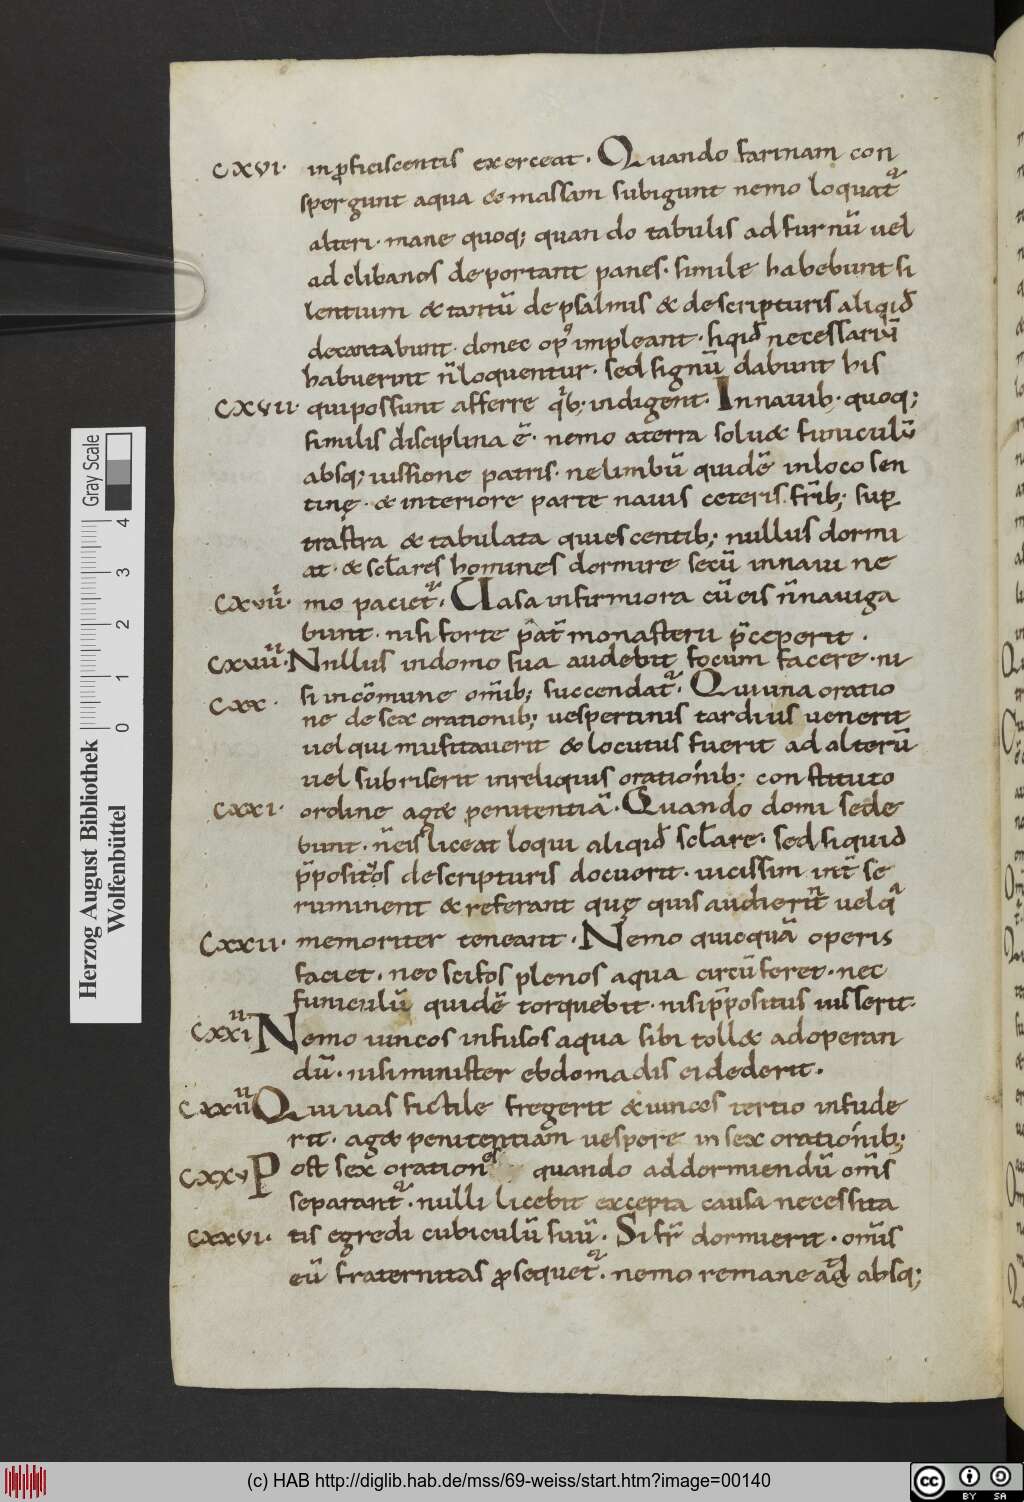 CXVI· in ꝓficiscentis exerceat· Quando farinam con
spergunt aqua & massam subigunt nemo loquat᷑
alteri· mane quoq; quando tabulis ad furnū uel
ad clibanos deportant panes· simile habebunt si
lentium & tantū de psalmis & de scripturis aliqid̄
decantabunt· donec opꝰ impleant· siqid̄ necessariū
habuerint n̄ loquentur· sed signū dabunt his
CXVII· qui possunt afferre qͥb; indigent· In nauib· quoq;
similis disciplina ē· nemo a terra solu& funiculū
absq; iussione patris· ne limbū quidē in loco sen
tinę· & interiore parte nauis ceteris fr̄ib; suꝑ
trastra & tabulata quiescentib; nullus dormi
at· & sc̄lares homines dormire secū in naui ne
CXVIII· mo paciet᷑· Uasa infirmiora cū eis n̄ nauiga
bunt· nisi forte pat̄ monasterii p̄ceperit·
CXVIIII· Nullus in domo sua audebit focum facere· ni
CXX· si in cōmune om̄ib; succendat᷑· Qui una oratio
ne de sex orationib; uespertinis tardius uenerit
uel qui musitauerit & locutus fuerit ad alterū
uel subriserit in reliquis orationib; constituto
CXXI· ordine ag& penitentiā· Quando domi sede
bunt· n̄ eis liceat loqui aliqid̄ sc̄lare· sed siquid
p̄positos de scripturis docuerit· uicissim int̄ se
ruminent & referant quę quis audierit uel qͣ
CXXII· memoriter teneant· Nemo quicquā operis
faciet· nec scifos plenos aqua circūferet· nec
funiculū quidē torquebit· nisi p̄positus iusserit·
CXXIII Nemo uincos infusos aqua sibi toll& ad operan
dū· nisi minister ebdomadis ei dederit·
CXXIIII Qui uas fictile fregerit & iunces tertio infude
rit· ag& penitentiam uespere in sex orationib;
CXXV Post sex orationꝰ quando ad dormiendū om̄s
separant᷑· nulli licebit excepta causa necessita
CXXVI· tis egredi cubiculū suū· Si fr̄ dormierit· om̄is
eū fraternitas ꝓsequet᷑· nemo remaneat absq;
Herzog August Bibliothek
Wolfenbüttel
0 1 2 3 4
Gray Scale
(c) HAB http://diglib.hab.de/mss/69-weiss/start.htm?image=00140
cc BY SA